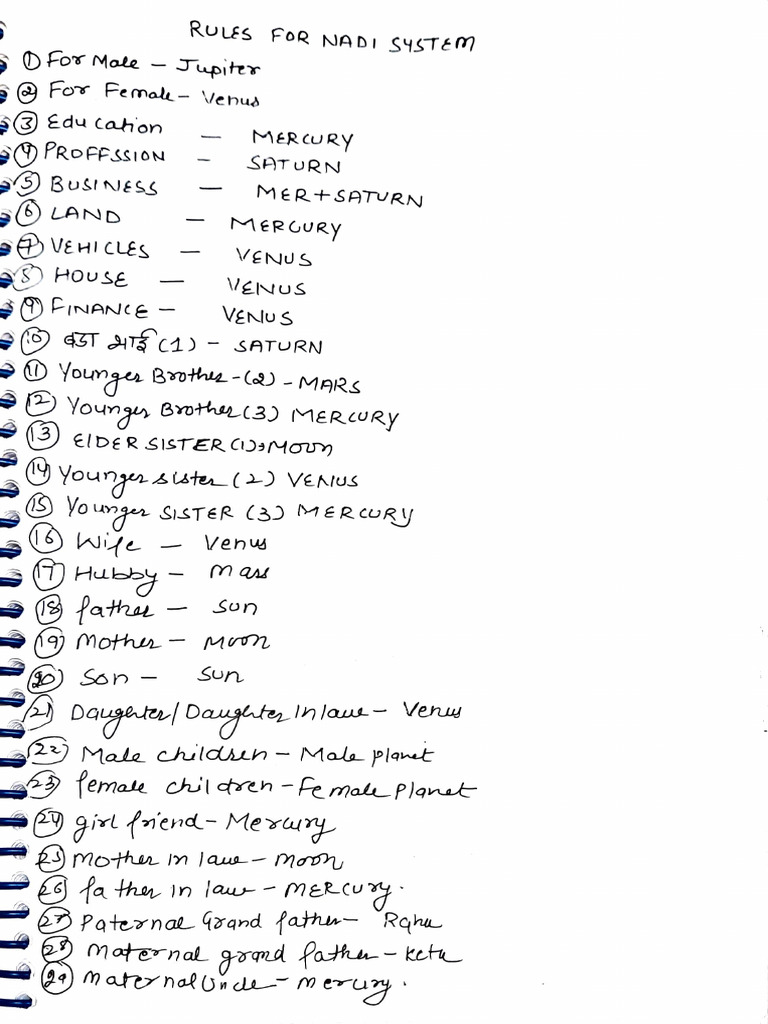 RULES FOR NADI SYSTEM
① For Male - Jupiter
② For Female - Venus
③ Education - MERCURY
④ PROFFSSION - SATURN
⑤ BUSINESS - MER+SATURN
⑥ LAND - MERCURY
⑦ VEHICLES - VENUS
⑧ HOUSE - VENUS
⑨ FINANCE - VENUS
⑩ बडा भाई (1) - SATURN
⑪ Younger Brother -(2) - MARS
⑫ Younger Brother (3) MERCURY
⑬ ElDER SISTER (1) > MOON
⑭ Younger sister (2) VENUS
⑮ Younger SISTER (3) MERCURY
⑯ Wife - Venus
⑰ Hubby - Mars
⑱ father - Sun
⑲ Mother - Moon
⑳ Son - Sun
㉑ Daughter/Daughter In law - Venus
㉒ Male children - Male planet
㉓ female children - Female Planet
㉔ girl friend - Mercury
㉕ Mother in law - Moon
㉖ father in law - MERCURY.
㉗ Paternal Grand father - Rahu
㉘ Maternal grand father - Ketu
㉙ Maternal Uncle - Mercury.